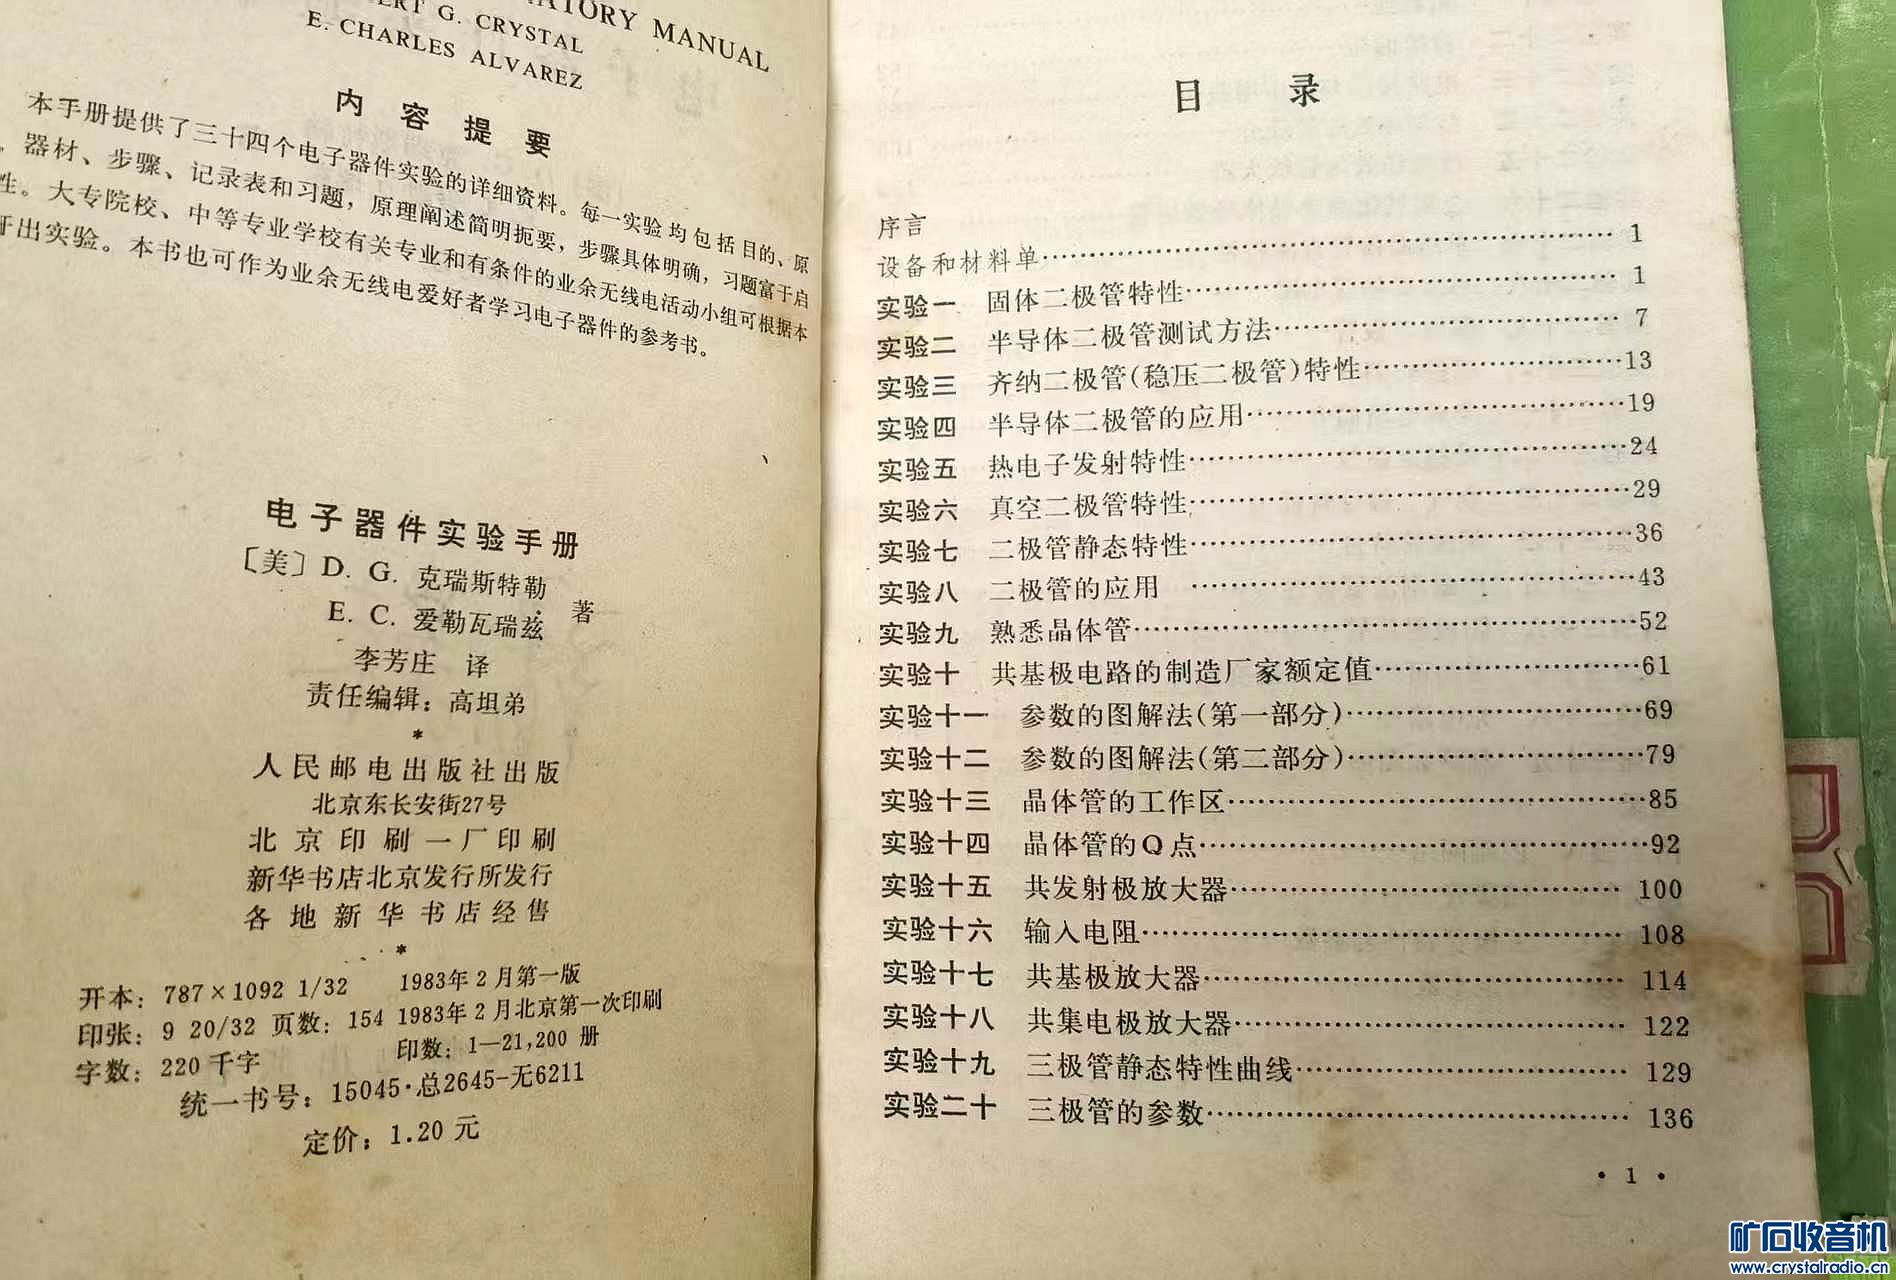 MANUAL
G. CRYSTAL
E. CHARLES ALVAREZ
内容提要
本手册提供了三十四个电子器件实验的详细资料。每一实验均包括目的、原
器材、步骤、记录表和习题，原理阐述简明扼要，步骤具体明确，习题富于启
性。大专院校、中等专业学校有关专业和有条件的业余无线电活动小组可根据本
开出实验。本书也可作为业余无线电爱好者学习电子器件的参考书。
电子器件实验手册
〔美〕D. G. 克瑞斯特勒
E. C. 爱勒瓦瑞兹 著
李芳庄 译
责任编辑：高坦弟
*
人民邮电出版社出版
北京东长安街27号
北京印刷一厂印刷
新华书店北京发行所发行
各地新华书店经售
*
开本：787×1092 1/32 1983年2月第一版
印张：9 20/32 页数：154 1983年2月北京第一次印刷
字数：220千字 印数：1—21,200 册
统一书号：15045·总2645-无6211
定价：1.20 元
目 录
序言
设备和材料单…… 1
实验一 固体二极管特性…… 1
实验二 半导体二极管测试方法…… 7
实验三 齐纳二极管(稳压二极管)特性……13
实验四 半导体二极管的应用……19
实验五 热电子发射特性……24
实验六 真空二极管特性……29
实验七 二极管静态特性……36
实验八 二极管的应用 ……43
实验九 熟悉晶体管……52
实验十 共基极电路的制造厂家额定值……61
实验十一 参数的图解法(第一部分)……69
实验十二 参数的图解法(第二部分)……79
实验十三 晶体管的工作区……85
实验十四 晶体管的Q点……92
实验十五 共发射极放大器…… 100
实验十六 输入电阻…… 108
实验十七 共基极放大器…… 114
实验十八 共集电极放大器…… 122
实验十九 三极管静态特性曲线…… 129
实验二十 三极管的参数…… 136
• 1 •
矿石收音机
www.crystalradio.cn